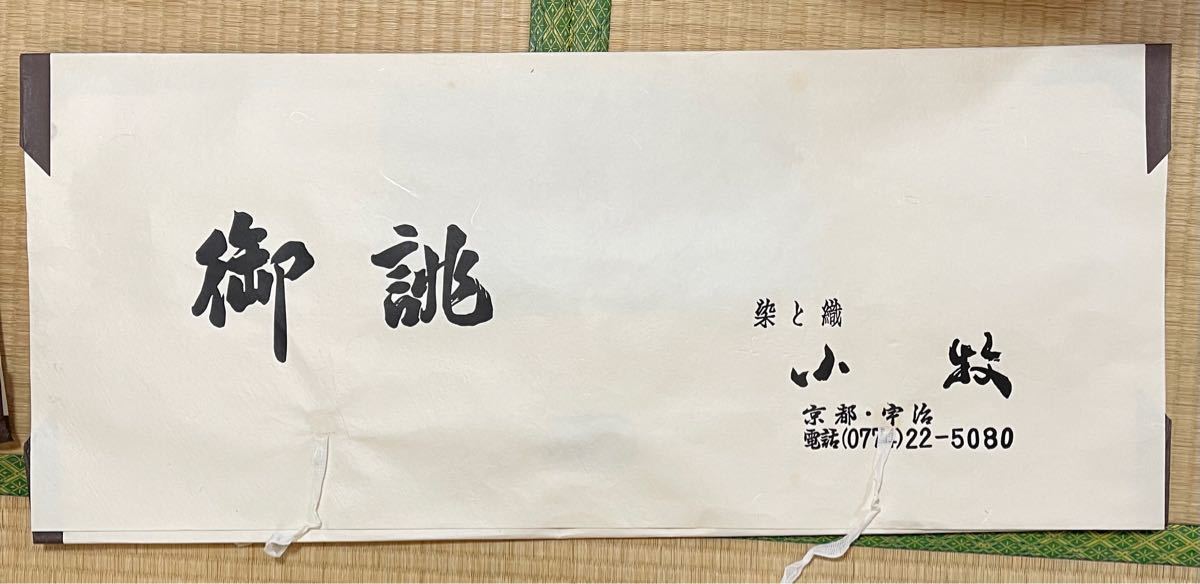 御誂
染と織
小牧
京都・宇治
電話(0774)22-5080